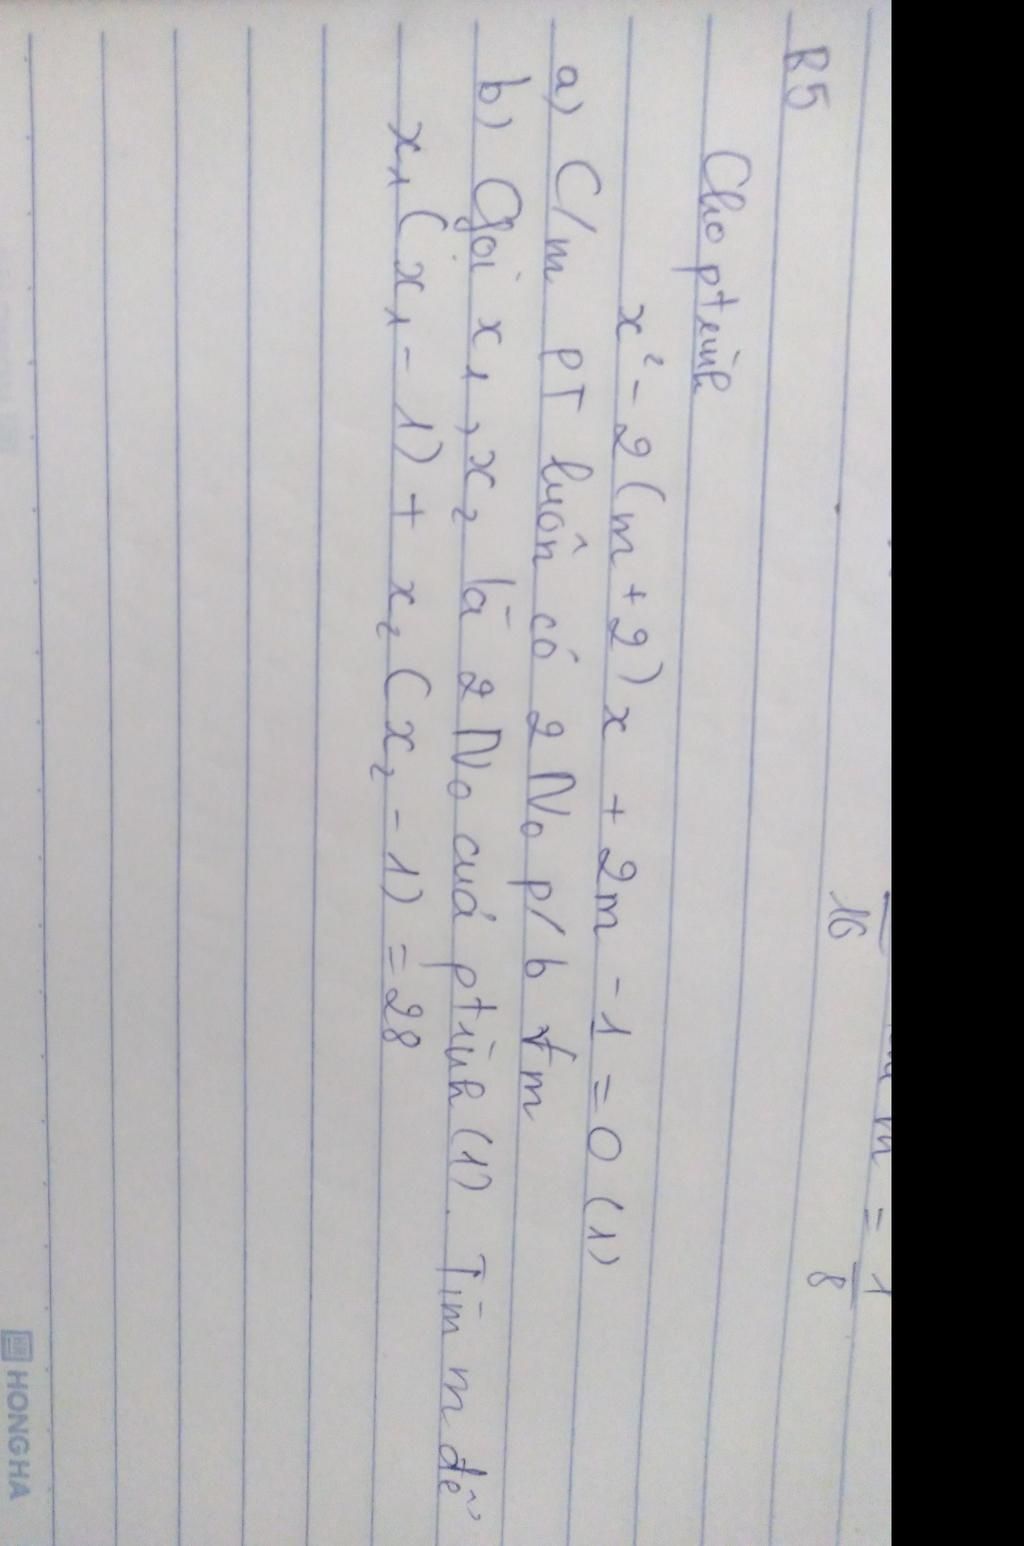 m = 1
16 8
B5
Cho ptrình
x² - 2(m + 2) x + 2m - 1 = 0 (1)
a) C/m PT luôn có 2 No p/b ∀m
b) Gọi x₁, x₂ là 2 No của ptrình (1). Tìm m để
x₁(x₁ - 1) + x₂(x₂ - 1) = 28
HONG HA